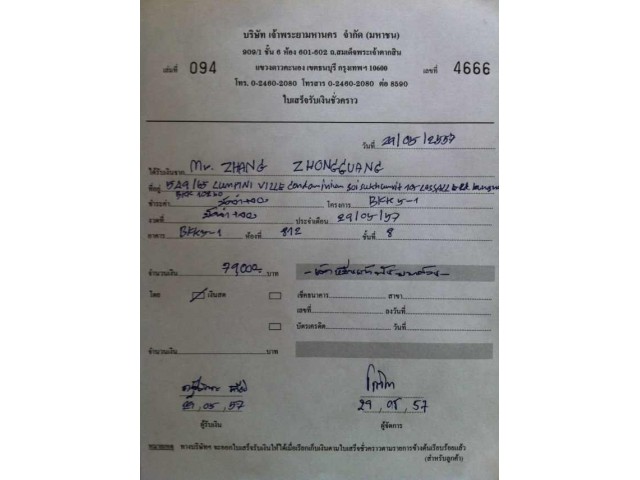 บริษัท เจ้าพระยามหานคร จำกัด (มหาชน)
909/1 ชั้น 6 ห้อง 601-602 ถ.สมเด็จพระเจ้าตากสิน
เล่มที่ 094 แขวงดาวคะนอง เขตธนบุรี กรุงเทพฯ 10600 เลขที่ 4666
โทร. 0-2460-2080 โทรสาร 0-2460-2080 ต่อ 8590
ใบเสร็จรับเงินชั่วคราว
วันที่ 29/05/2557
ได้รับเงินจาก Mr. ZHANG ZHONGGUANG
ที่อยู่ 549/65 LUMPINI VILLE Condominium Soi Sukhumvit
ชำระค่า โครงการ BKK5-1
งวดที่ ประจำเดือน 29/05/57
อาคาร BKK5-1 ห้องที่ 812 ชั้นที่ 8
จำนวนเงิน 79000 บาท
โดย เงินสด เช็คธนาคาร สาขา
เลขที่ ลงวันที่
บัตรเครดิต วันที่
จำนวนเงิน บาท
29, 05, 57 29, 05, 57
ผู้รับเงิน ผู้จัดการ
หมายเหตุ ทางบริษัทฯ จะออกใบเสร็จรับเงินให้ได้เมื่อเรียกเก็บเงินตามใบเสร็จชั่วคราวตามรายการข้างต้นเรียบร้อยแล้ว
(สำหรับลูกค้า)